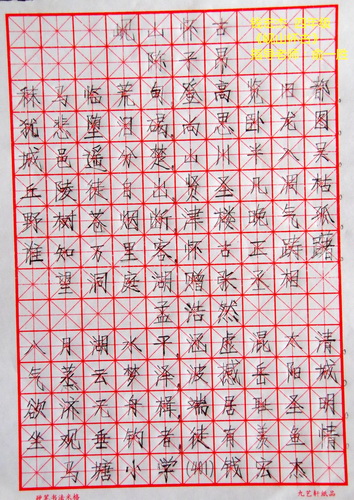 岘山怀古
陈子昂
秣马临荒甸,登高览旧都
犹悲堕泪碣,尚思卧龙图
城邑遥分楚,山川半入吴
丘陵徒自出贤圣几凋枯
野树苍烟断,津楼晚气孤
谁知万里客,怀古正踌躇
望洞庭湖赠张丞相
孟浩然
八月湖水平,涵虚混太清
气蒸云梦泽,波撼岳阳城
欲济无舟楫,端居耻圣明
坐观垂钓者,徒有羡鱼情
马塘小学(401)钱宏杰
硬笔书法米格 九艺轩纸品